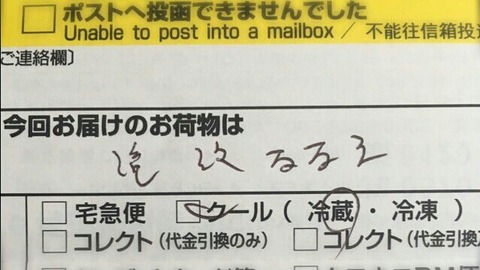 ポストへ投函できませんでした
Unable to post into a mailbox / 不能往信箱投
ご連絡欄〕
今回お届けのお荷物は
宅急便 クール ( 冷蔵・冷凍 )
コレクト (代金引換のみ) コレクト (代金引換